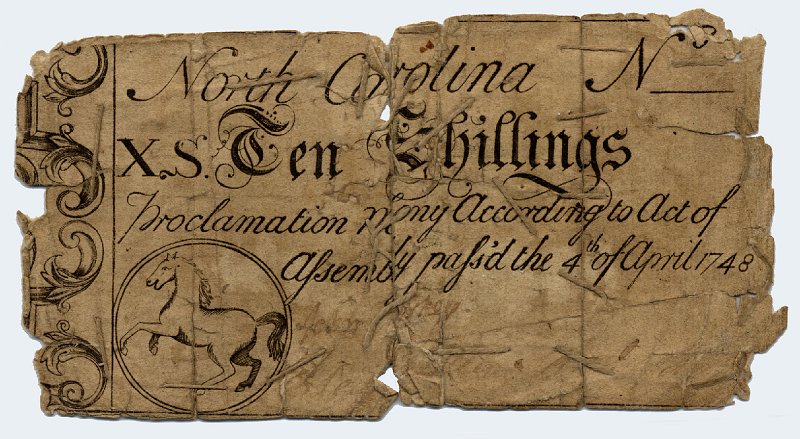 North Carolina N.º
X.S. Ten Shillings
Proclamation Mony According to Act of
Aſsembly paſs'd the 4th of April 1748
John